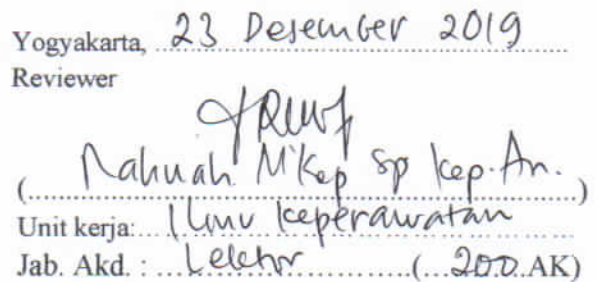 Yogyakarta, 23 Desember 2019
Reviewer
( M'Kep Sp Kep.An. )
Unit kerja: Ilmu keperawatan
Jab. Akd. : Lektor (200 AK)